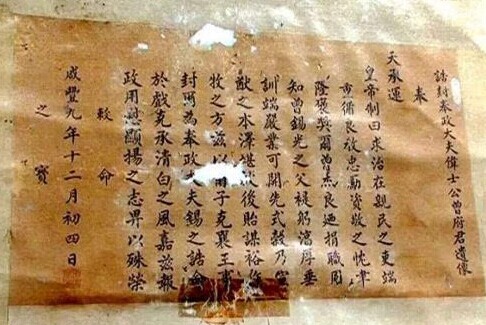 誥封奉政大夫偉士公曾府君遺像
奉
天承運
皇帝制曰求治在親民之吏端
重循良敘忠勵資敬之忱聿
隆褒獎爾曾杰良迺捐職同
知曾錫光之父褆躬淳厚垂
訓端嚴業可開先式穀乃宣
猷之本澤堪後貽謀裕作
牧之方茲以爾子克襄王事
封爾為奉政大夫錫之誥命
於戲克承清白之風嘉茲報
政用慰顯揚之志畀以殊榮
敕命
咸豐九年十二月初四日
之寶